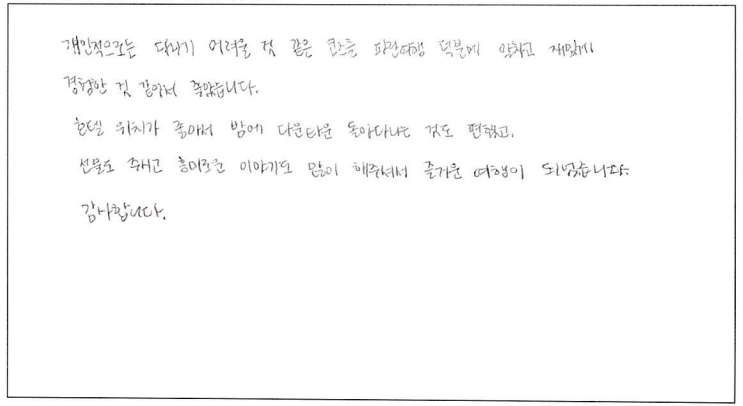 개인적으로는 다니기 어려울 것 같은 코스를 파란여행 덕분에 알차고 재밌게
경험한 것 같아서 좋았습니다.
호텔 위치가 좋아서 밤에 다운타운 돌아다니는 것도 편했고,
선물도 주시고 흥미로운 이야기도 많이 해주셔서 즐거운 여행이 되었습니다.
감사합니다.